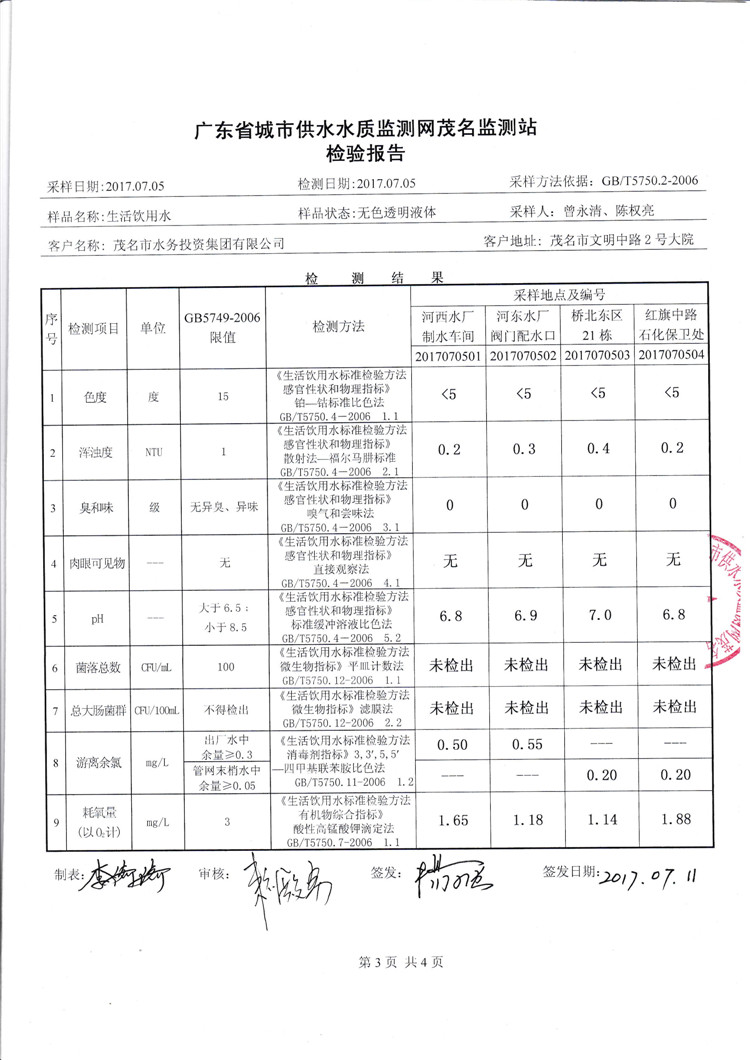 广东省城市供水水质监测网茂名监测站
检验报告
采样日期:2017.07.05 检测日期:2017.07.05 采样方法依据: GB/T5750.2-2006
样品名称:生活饮用水 样品状态:无色透明液体 采样人: 曾永清、陈权亮
客户名称: 茂名市水务投资集团有限公司 客户地址: 茂名市文明中路2号大院
检 测 结 果
序号 检测项目 单位 GB5749-2006 限值 检测方法 采样地点及编号
河西水厂 制水车间 河东水厂 阀门配水口 桥北东区 21栋 红旗中路 石化保卫处
2017070501 2017070502 2017070503 2017070504
1 色度 度 15 《生活饮用水标准检验方法 感官性状和物理指标》 铂—钴标准比色法 GB/T5750.4-2006 1.1 <5 <5 <5 <5
2 浑浊度 NTU 1 《生活饮用水标准检验方法 感官性状和物理指标》 散射法—福尔马肼标准 GB/T5750.4-2006 2.1 0.2 0.3 0.4 0.2
3 臭和味 级 无异臭、异味 《生活饮用水标准检验方法 感官性状和物理指标》 嗅气和尝味法 GB/T5750.4-2006 3.1 0 0 0 0
4 肉眼可见物 --- 无 《生活饮用水标准检验方法 感官性状和物理指标》 直接观察法 GB/T5750.4-2006 4.1 无 无 无 无
5 pH --- 大于6.5; 小于8.5 《生活饮用水标准检验方法 感官性状和物理指标》 标准缓冲溶液比色法 GB/T5750.4-2006 5.2 6.8 6.9 7.0 6.8
6 菌落总数 CFU/mL 100 《生活饮用水标准检验方法 微生物指标》平皿计数法 GB/T5750.12-2006 1.1 未检出 未检出 未检出 未检出
7 总大肠菌群 CFU/100mL 不得检出 《生活饮用水标准检验方法 微生物指标》滤膜法 GB/T5750.12-2006 2.2 未检出 未检出 未检出 未检出
8 游离余氯 mg/L 出厂水中 余量≥0.3 《生活饮用水标准检验方法 消毒剂指标》3,3′,5,5′ —四甲基联苯胺比色法 GB/T5750.11-2006 1.2 0.50 0.55 --- ---
管网末梢水中 余量≥0.05 --- --- 0.20 0.20
9 耗氧量 (以O₂计) mg/L 3 《生活饮用水标准检验方法 有机物综合指标》 酸性高锰酸钾滴定法 GB/T5750.7-2006 1.1 1.65 1.18 1.14 1.88
制表: 审核: 签发: 签发日期: 2017.07.11
第3页 共4页